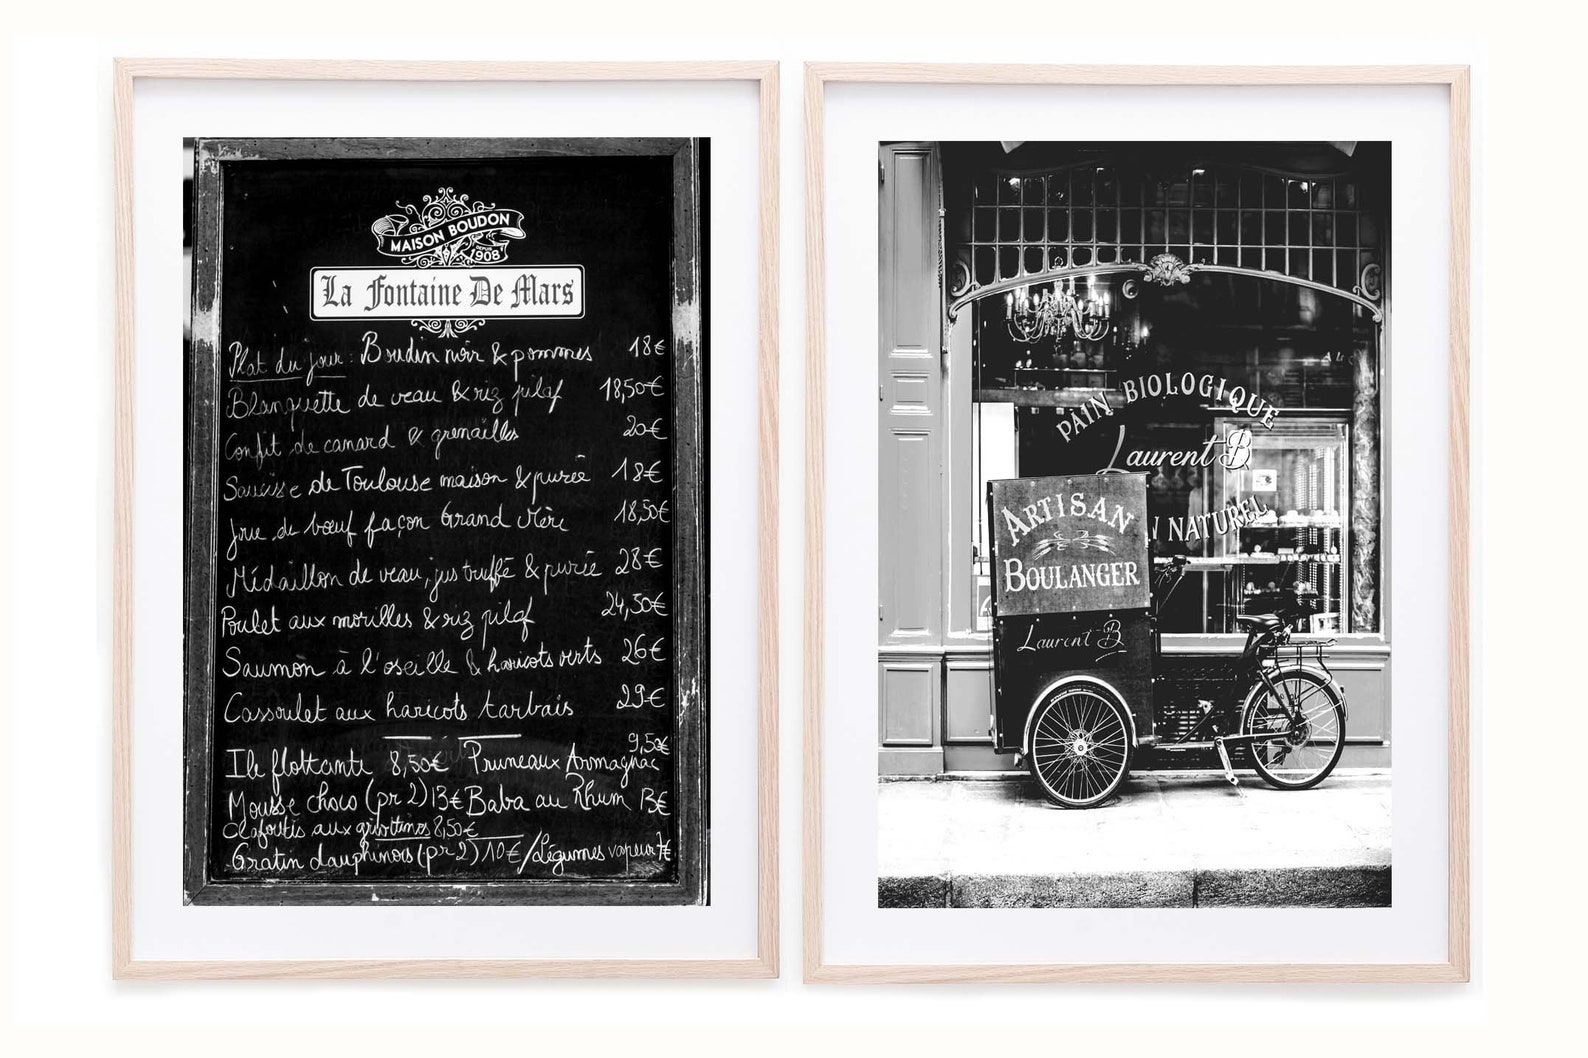 MAISON BOUDON
DEPUIS
1908
La Fontaine De Mars
Plat du jour: Boudin noir & pommes 18€
Blanquette de veau & riz pilaf 18,50€
Confit de canard & grenailles 20€
Saucisse de Toulouse maison & purée 18€
Joue de bœuf façon Grand Mère 18,50€
Médaillon de veau, jus truffé & purée 28€
Poulet aux morilles & riz pilaf 24,50€
Saumon à l'oseille & haricots verts 26€
Cassoulet aux haricots tarbais 29€
Ile flottante 8,50€ Pruneaux Armagnac 9,50€
Mousse choco (pr 2) 13€ Baba au Rhum 13€
Clafoutis aux griottines 8,50€
Gratin dauphinois (pr 2) 10€ / Légumes vapeur 7€
PAIN BIOLOGIQUE
Laurent B
N NATUREL
ARTISAN
BOULANGER
Laurent B